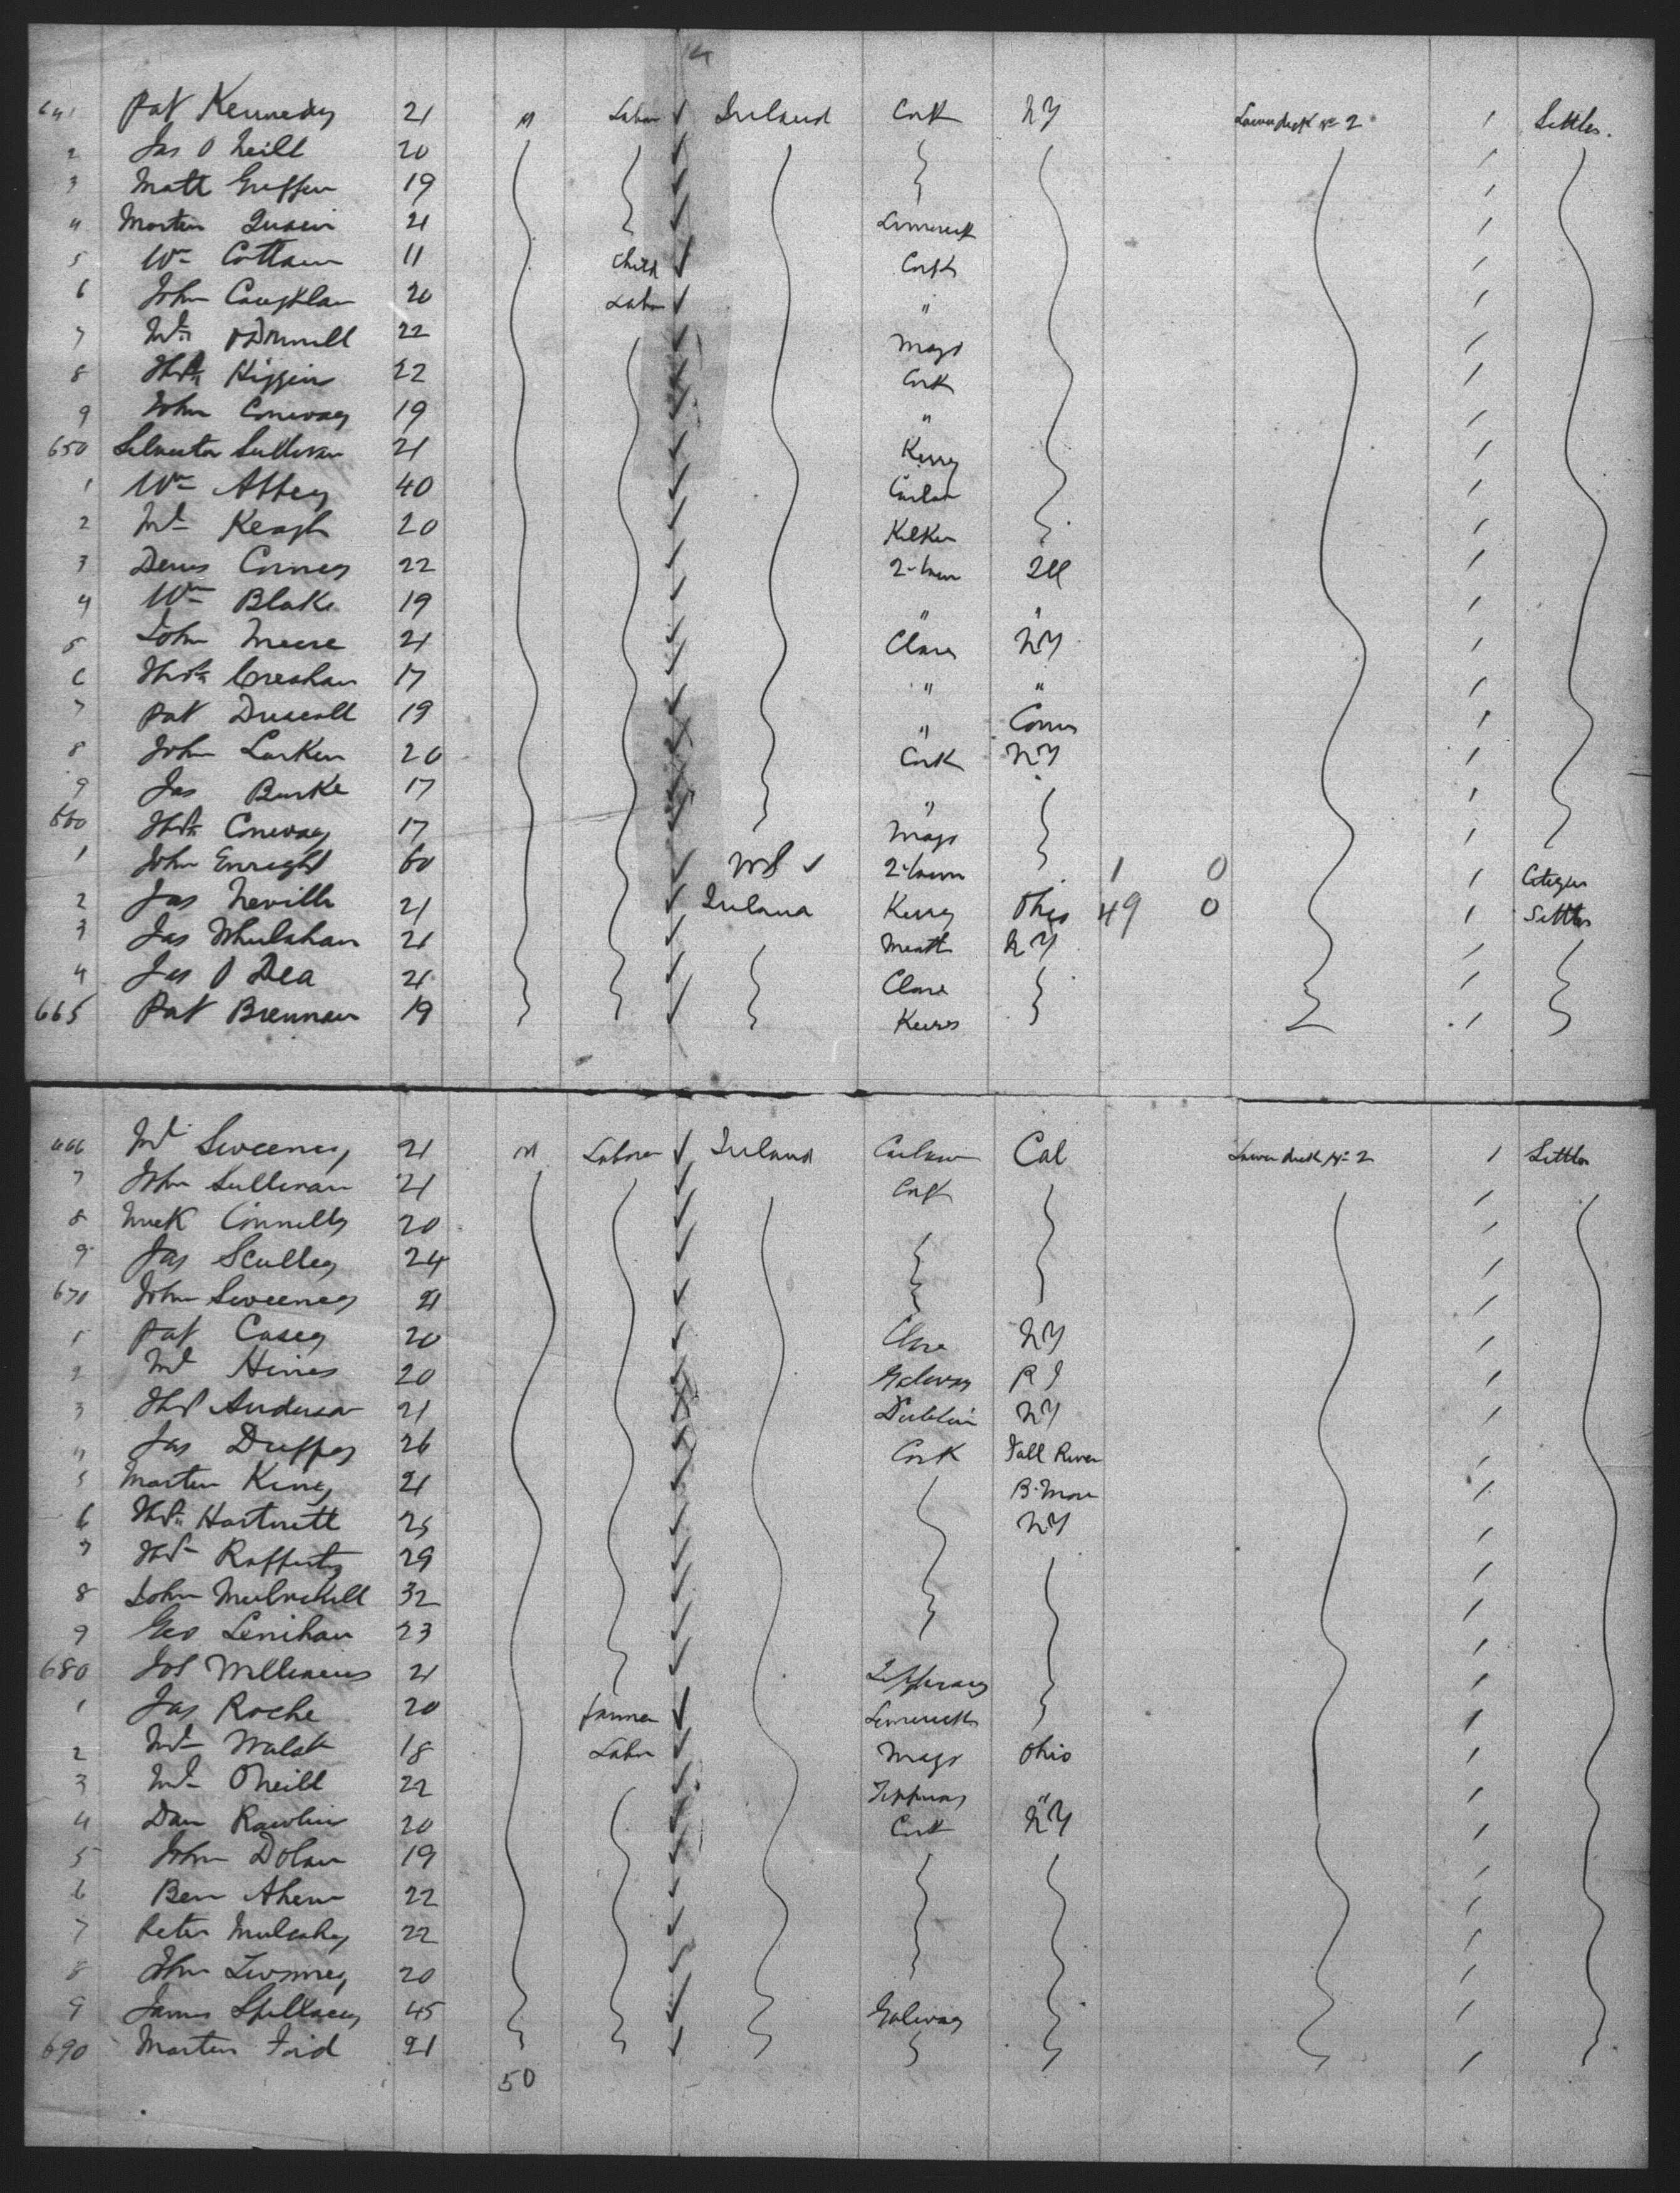 641 Pat Kennedy 21 M Labor Ireland Cork NY Lower deck No 2 1 Settler.
2 Jas O Neill 20
3 Matt Griffin 19
4 Morten 21 Limerick
5 Wm Cottam 11 Child Cork
6 John Coughlan 20 Labor "
7 Ml O'Donnell 22 Mayo
8 Thos Higgins 22 Cork
9 John Conway 19 "
650 Silvester Sullivan 21 Kerry
1 Wm Abbey 40 Carlow
2 Ml Keogh 20 Kilken
3 Denis 22 Ill
4 Wm Blake 19 " "
5 John 21 Clare NY
6 Thos Creahan 17 " "
7 Pat Driscoll 19 " Conn
8 John Larken 20 Cork NY
9 Jas Burke 17 "
660 Thos Conway 17 Mayo
1 John Enright 60 US 1 0 1 Citizen
2 Jas Neville 21 Ireland Kerry Ohio 49 0 1 Settler
3 Jas Whelahan 21 Meath NY
4 Jas O Dea 21 Clare
665 Pat Brennan 19
666 Ml Sweeney 21 M Laborer Ireland Carlow Cal Lower deck No 2 1 Settler
7 John Sullivan 21 Cork
8 Mick Connelly 20
9 Jas Sculley 24
670 John Sweeney 21
1 Pat Casey 20 Clare NY
2 Ml Hines 20 Galway R I
3 Thos Anderson 21 Dublin NY
4 Jas Duffey 26 Cork Fall River
5 Morten King 21 B-More
6 Thos Hartnett 25 NY
7 Thos Rafferty 29
8 John 32
9 Geo Lenihan 23
680 Jos Williams 21 Tipperary
1 Jas Roche 20 farmer Limerick
2 Ml Walsh 18 Labor Mayo Ohio
3 Ml O'Neill 22 "
4 Dan Rawlin 20 Cork NY
5 John Dolan 19
6 Ben Ahern 22
7 Peter Mulcahy 22
8 John Twomey 20
9 James Spillacey 45 Galway
690 Morten Ford 21
50